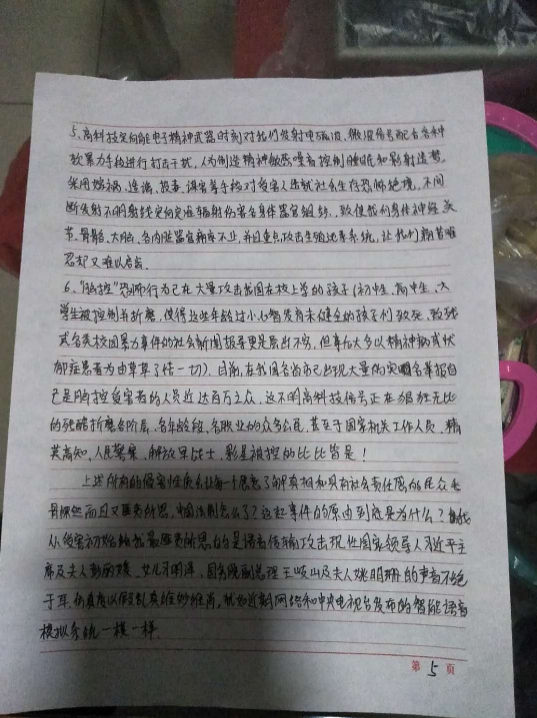 5、高科技定向能电子精神武器时刻对我们发射电磁波、微波信号配合各种
软暴力手段进行打击干扰,人为制造精神敏感噪音控制睡眠和影射造势,
采用嫁祸、连诵、投毒、谋害等手段对受害人造就社会生存恐怖绝境,不间
断发射不明射线定向定准辐射伤害各身体器官组织,致使我们身体神经关
节、骨骼、大脑、各内脏器官病痛不止,并且重点攻击生殖泌尿系统,让我们痛苦难
忍却又难以启齿。
6、"脑控"恐怖行为已在大量攻击我国在校上学的孩子(初中生、高中生、大
学生被控制并折磨,使得这些年龄过小心智发育未健全的孩子们致死、致残
或各类校园暴力事件的社会新闻报导更是层出不穷,但事后大多以精神病或忧
郁症患者为由草草了结一切)。目前,在我国各省市已出现大量的实名举报自
己是脑控受害者的人员近达百万之众,这不明高科技信号正在猖狂无比
的残酷折磨各阶层、各年龄段、各职业的众多公民,甚至于国家机关工作人员、精
英高知、人民警察、解放军战士,影星被控的比比皆是!
上述所有的侵害性质会让每一个愿意了解真相和具有社会责任感的民众毛
骨悚然而且又匪夷所思,中国法制怎么了?这起事件的原由到底是为什么?
从受害初始 就最匪夷所思的是语音传输攻击现任国家领导人习近平主
席及夫人彭丽媛、女儿习明泽、国务院副总理王岐山及夫人姚明珊的声音不绝
于耳,仿真度以假乱真维妙维肖,就如近期网络和中央电视台发布的智能语音
模拟系统一模一样。
第 5 页